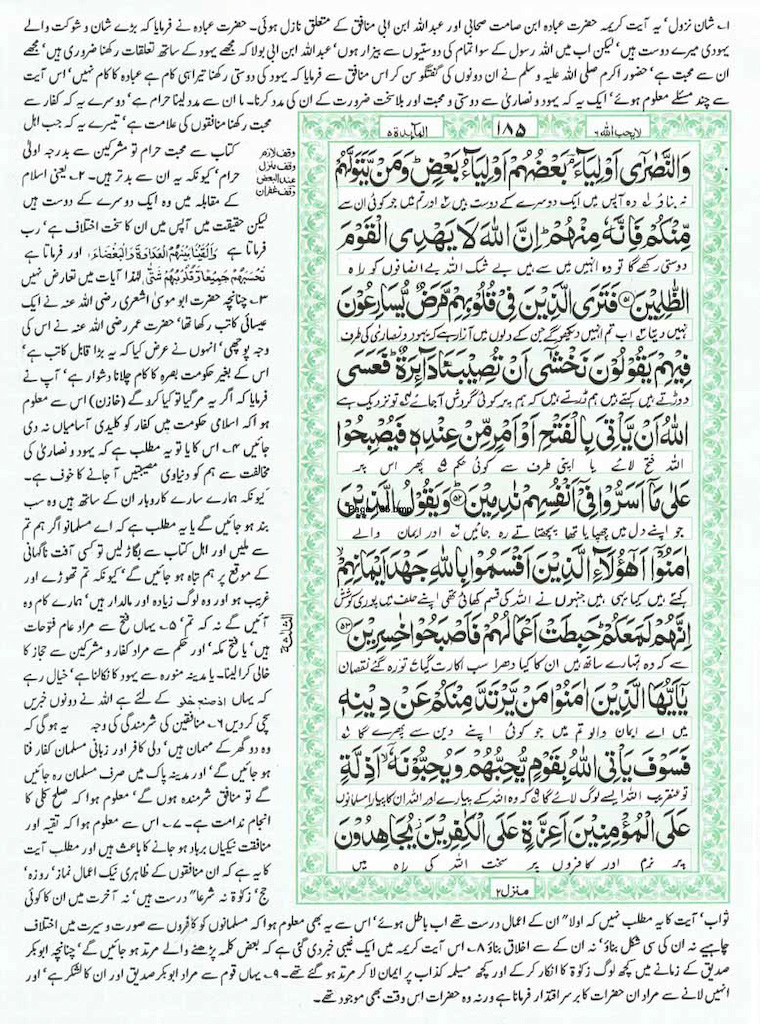 ۱۔ شان نزول‘ یہ آیت کریمہ حضرت عبادہ ابن صامت صحابی اور عبداللہ ابن ابی منافق کے متعلق نازل ہوئی۔ حضرت عبادہ نے فرمایا کہ بڑے شان و شوکت والے
یہودی میرے دوست ہیں‘ لیکن اب میں اللہ رسول کے سوا تمام کی دوستیوں سے بیزار ہوں‘ عبداللہ ابن ابی بولا کہ مجھے یہود کے ساتھ تعلقات رکھنا ضروری ہیں‘ مجھے
ان سے محبت ہے‘ حضور اکرم صلی اللہ علیہ وسلم نے ان دونوں کی گفتگو سن کر اس منافق سے فرمایا کہ یہود کی دوستی رکھنا تیرا ہی کام ہے عبادہ کا کام نہیں‘ اس آیت
سے چند مسئلے معلوم ہوئے‘ ایک یہ کہ یہود و نصاریٰ سے دوستی و محبت اور بلا سخت ضرورت کے ان کی مدد کرنا۔ یا ان سے مدد لینا حرام ہے‘ دوسرے یہ کہ کفار سے
محبت رکھنا منافقوں کی علامت ہے‘ تیسرے یہ کہ جب اہل
کتاب سے محبت حرام تو مشرکین سے بدرجہ اولیٰ
حرام‘ کیونکہ یہ ان سے بدتر ہیں۔ ۲۔ یعنی اسلام
کے مقابلہ میں وہ ایک دوسرے کے دوست ہیں
لیکن حقیقت میں آپس میں ان کا سخت اختلاف ہے‘ رب
فرماتا ہے وَاَلْقَیْنَا بَیْنَهُمُ الْعَدَاوَةَ وَالْبَغْضَاءَ‘ اور فرماتا ہے
تَحْسَبُهُمْ جَمِیْعًا وَّقُلُوْبُهُمْ شَتّٰی لہٰذا آیات میں تعارض نہیں
۳۔ چنانچہ حضرت ابو موسیٰ اشعری رضی اللہ عنہ نے ایک
عیسائی کاتب رکھا تھا‘ حضرت عمر رضی اللہ عنہ نے اس کی
وجہ پوچھی‘ انہوں نے عرض کیا کہ یہ بڑا قابل کاتب ہے‘
اس کے بغیر حکومت بصرہ کا کام چلانا دشوار ہے‘ آپ نے
فرمایا کہ اگر یہ مر گیا تو کیا کرو گے (خازن) اس سے معلوم
ہوا کہ اسلامی حکومت میں کفار کو کلیدی آسامیاں نہ دی
جائیں ۴۔ اس کا یا تو یہ مطلب ہے کہ یہود و نصاریٰ کی
مخالفت سے ہم کو دنیاوی مصیبتیں آ جانے کا خوف ہے۔
کیونکہ ہمارے سارے کاروبار ان کے ساتھ ہیں وہ سب
بند ہو جائیں گے یا یہ مطلب ہے کہ اے مسلمانو اگر ہم تم
سے ملیں اور اہل کتاب سے بگاڑ لیں تو کسی آفت ناگہانی
کے موقع پر ہم تباہ ہو جائیں گے‘ کیونکہ تم تھوڑے اور
غریب ہو اور وہ لوگ زیادہ اور مالدار ہیں‘ ہمارے کام وہ
آئیں گے نہ کہ تم‘ ۵۔ یہاں فتح سے مراد عام فتوحات
ہیں‘ یا فتح مکہ‘ اور حکم سے مراد کفار و مشرکین سے حجاز کا
خالی کرا لینا۔ یا مدینہ منورہ سے یہود کا نکالنا ہے‘ خیال رہے
کہ یہاں کے لئے ہے اللہ نے دونوں خبریں
سچی کر دیں ۶۔ منافقین کی شرمندگی کی وجہ یہ ہو گی کہ
وہ دو گھر کے مہمان ہیں‘ دلی کافر اور زبانی مسلمان کفار فنا
ہو جائیں گے‘ اور مدینہ پاک میں صرف مسلمان رہ جائیں
گے تو منافق شرمندہ ہوں گے‘ معلوم ہوا کہ صلح کلی کا
انجام ندامت ہے۔ ۷۔ اس سے معلوم ہوا کہ تقیہ اور
منافقت نیکیاں برباد ہو جانے کا باعث ہیں اور مطلب آیت
کا یہ ہے کہ ان منافقوں کے ظاہری نیک اعمال نماز‘ روزہ‘
حج‘ زکوٰۃ نہ شرعا" درست ہیں‘ نہ آخرت میں ان کا کوئی
وقف لازم
وقف منزل
عند البعض
وقف غفران
الثلثة
لا یحب اللہ ۶
۱۸۵
المآئدة ۵
وَالنَّصٰرٰۤی اَوْلِیَآءَ ؔۘ بَعْضُهُمْ اَوْلِیَآءُ بَعْضٍ ؕ وَمَنْ یَّتَوَلَّهُمْ
نہ بناؤ ۱ وہ آپس میں ایک دوسرے کے دوست ہیں ۲ اور تم میں جو کوئی ان سے
مِّنْكُمْ فَاِنَّهٗ مِنْهُمْ ؕ اِنَّ اللّٰهَ لَا یَهْدِی الْقَوْمَ
دوستی رکھے گا تو وہ انہیں میں سے ہیں بے شک اللہ بے انصافوں کو راہ
الظّٰلِمِیْنَ ﴿۵۱﴾ فَتَرَی الَّذِیْنَ فِیْ قُلُوْبِهِمْ مَّرَضٌ یُّسَارِعُوْنَ
نہیں دیتا ۳ اب تم انہیں دیکھو گے جن کے دلوں میں آزار ہے کہ یہود و نصاریٰ کی طرف
فِیْهِمْ یَقُوْلُوْنَ نَخْشٰۤی اَنْ تُصِیْبَنَا دَآئِرَةٌ ؕ فَعَسَی
دوڑتے ہیں کہتے ہیں ہم ڈرتے ہیں کہ ہم پر کوئی گردش آ جائے ۴ تو نزدیک ہے
اللّٰهُ اَنْ یَّاْتِیَ بِالْفَتْحِ اَوْ اَمْرٍ مِّنْ عِنْدِهٖ فَیُصْبِحُوْا
اللہ فتح لائے یا اپنی طرف سے کوئی حکم ۵ پھر اس پر
عَلٰی مَاۤ اَسَرُّوْا فِیْۤ اَنْفُسِهِمْ نٰدِمِیْنَ ﴿۵۲﴾ وَیَقُوْلُ الَّذِیْنَ
جو اپنے دل میں چھپایا تھا پچھتاتے رہ جائیں ۶ اور ایمان والے
اٰمَنُوْۤا اَهٰۤؤُلَآءِ الَّذِیْنَ اَقْسَمُوْا بِاللّٰهِ جَهْدَ اَیْمَانِهِمْ ۙ
کہتے ہیں کیا یہی ہیں جنہوں نے اللہ کی قسم کھائی تھی اپنے حلف میں پوری کوشش
اِنَّهُمْ لَمَعَكُمْ ؕ حَبِطَتْ اَعْمَالُهُمْ فَاَصْبَحُوْا خٰسِرِیْنَ ﴿۵۳﴾
سے کہ وہ تمہارے ساتھ ہیں ان کا کیا دھرا سب اکارت گیا ۷ تو رہ گئے نقصان
یٰۤاَیُّهَا الَّذِیْنَ اٰمَنُوْا مَنْ یَّرْتَدَّ مِنْكُمْ عَنْ دِیْنِهٖ
میں اے ایمان والو تم میں جو کوئی اپنے دین سے پھرے گا ۸
فَسَوْفَ یَاْتِی اللّٰهُ بِقَوْمٍ یُّحِبُّهُمْ وَیُحِبُّوْنَهٗۤ ۙ اَذِلَّةٍ
تو عنقریب اللہ ایسے لوگ لائے گا ۹ کہ وہ اللہ کے پیارے اور اللہ ان کا پیارا مسلمانوں
عَلَی الْمُؤْمِنِیْنَ اَعِزَّةٍ عَلَی الْكٰفِرِیْنَ ؗ یُجَاهِدُوْنَ
پر نرم اور کافروں پر سخت اللہ کی راہ میں
منزل ۲
Page 185.bmp
ثواب‘ آیت کا یہ مطلب نہیں کہ اولا" ان کے اعمال درست تھے اب باطل ہوئے‘ اس سے یہ بھی معلوم ہوا کہ مسلمانوں کو کافروں سے صورت و سیرت میں اختلاف
چاہیے نہ ان کی سی شکل بناؤ‘ نہ ان کے سے اخلاق بناؤ ۸۔ اس آیت کریمہ میں ایک غیبی خبر دی گئی ہے کہ بعض کلمہ پڑھنے والے مرتد ہو جائیں گے‘ چنانچہ ابوبکر
صدیق کے زمانے میں کچھ لوگ زکوٰۃ کا انکار کر کے اور کچھ مسیلمہ کذاب پر ایمان لا کر مرتد ہو گئے تھے۔ ۹۔ یہاں قوم سے مراد ابوبکر صدیق اور ان کا لشکر ہے‘ اور
انہیں لانے سے مراد ان حضرات کا برسر اقتدار فرمانا ہے ورنہ وہ حضرات اس وقت بھی موجود تھے۔